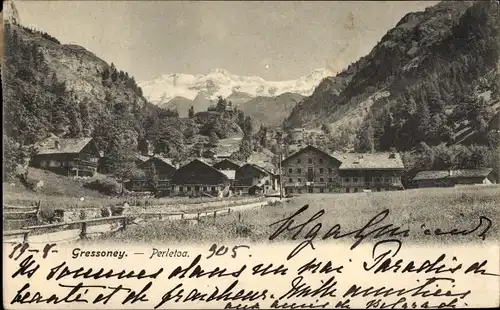 Gressoney. — Perletoa.
19-8- 905
Ils sommes dans un vrai Paradis de
beauté et de fraicheur. Mille amitiés
aux amis de